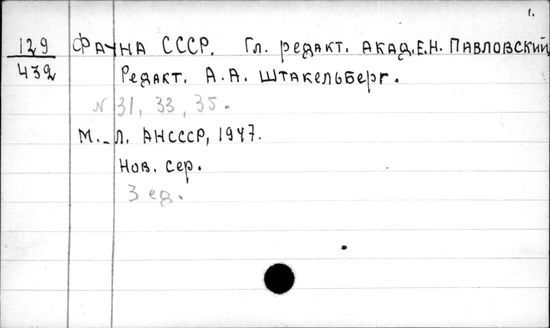 1.
129 ФАУНА СССР. Гл. редакт. акад. Е.Н. Павловский,
432 Редакт. А.А. Штакельберг.
N 31, 33, 35.
М.-Л. АНСССР, 1947.
Нов. сер.
3 ед.